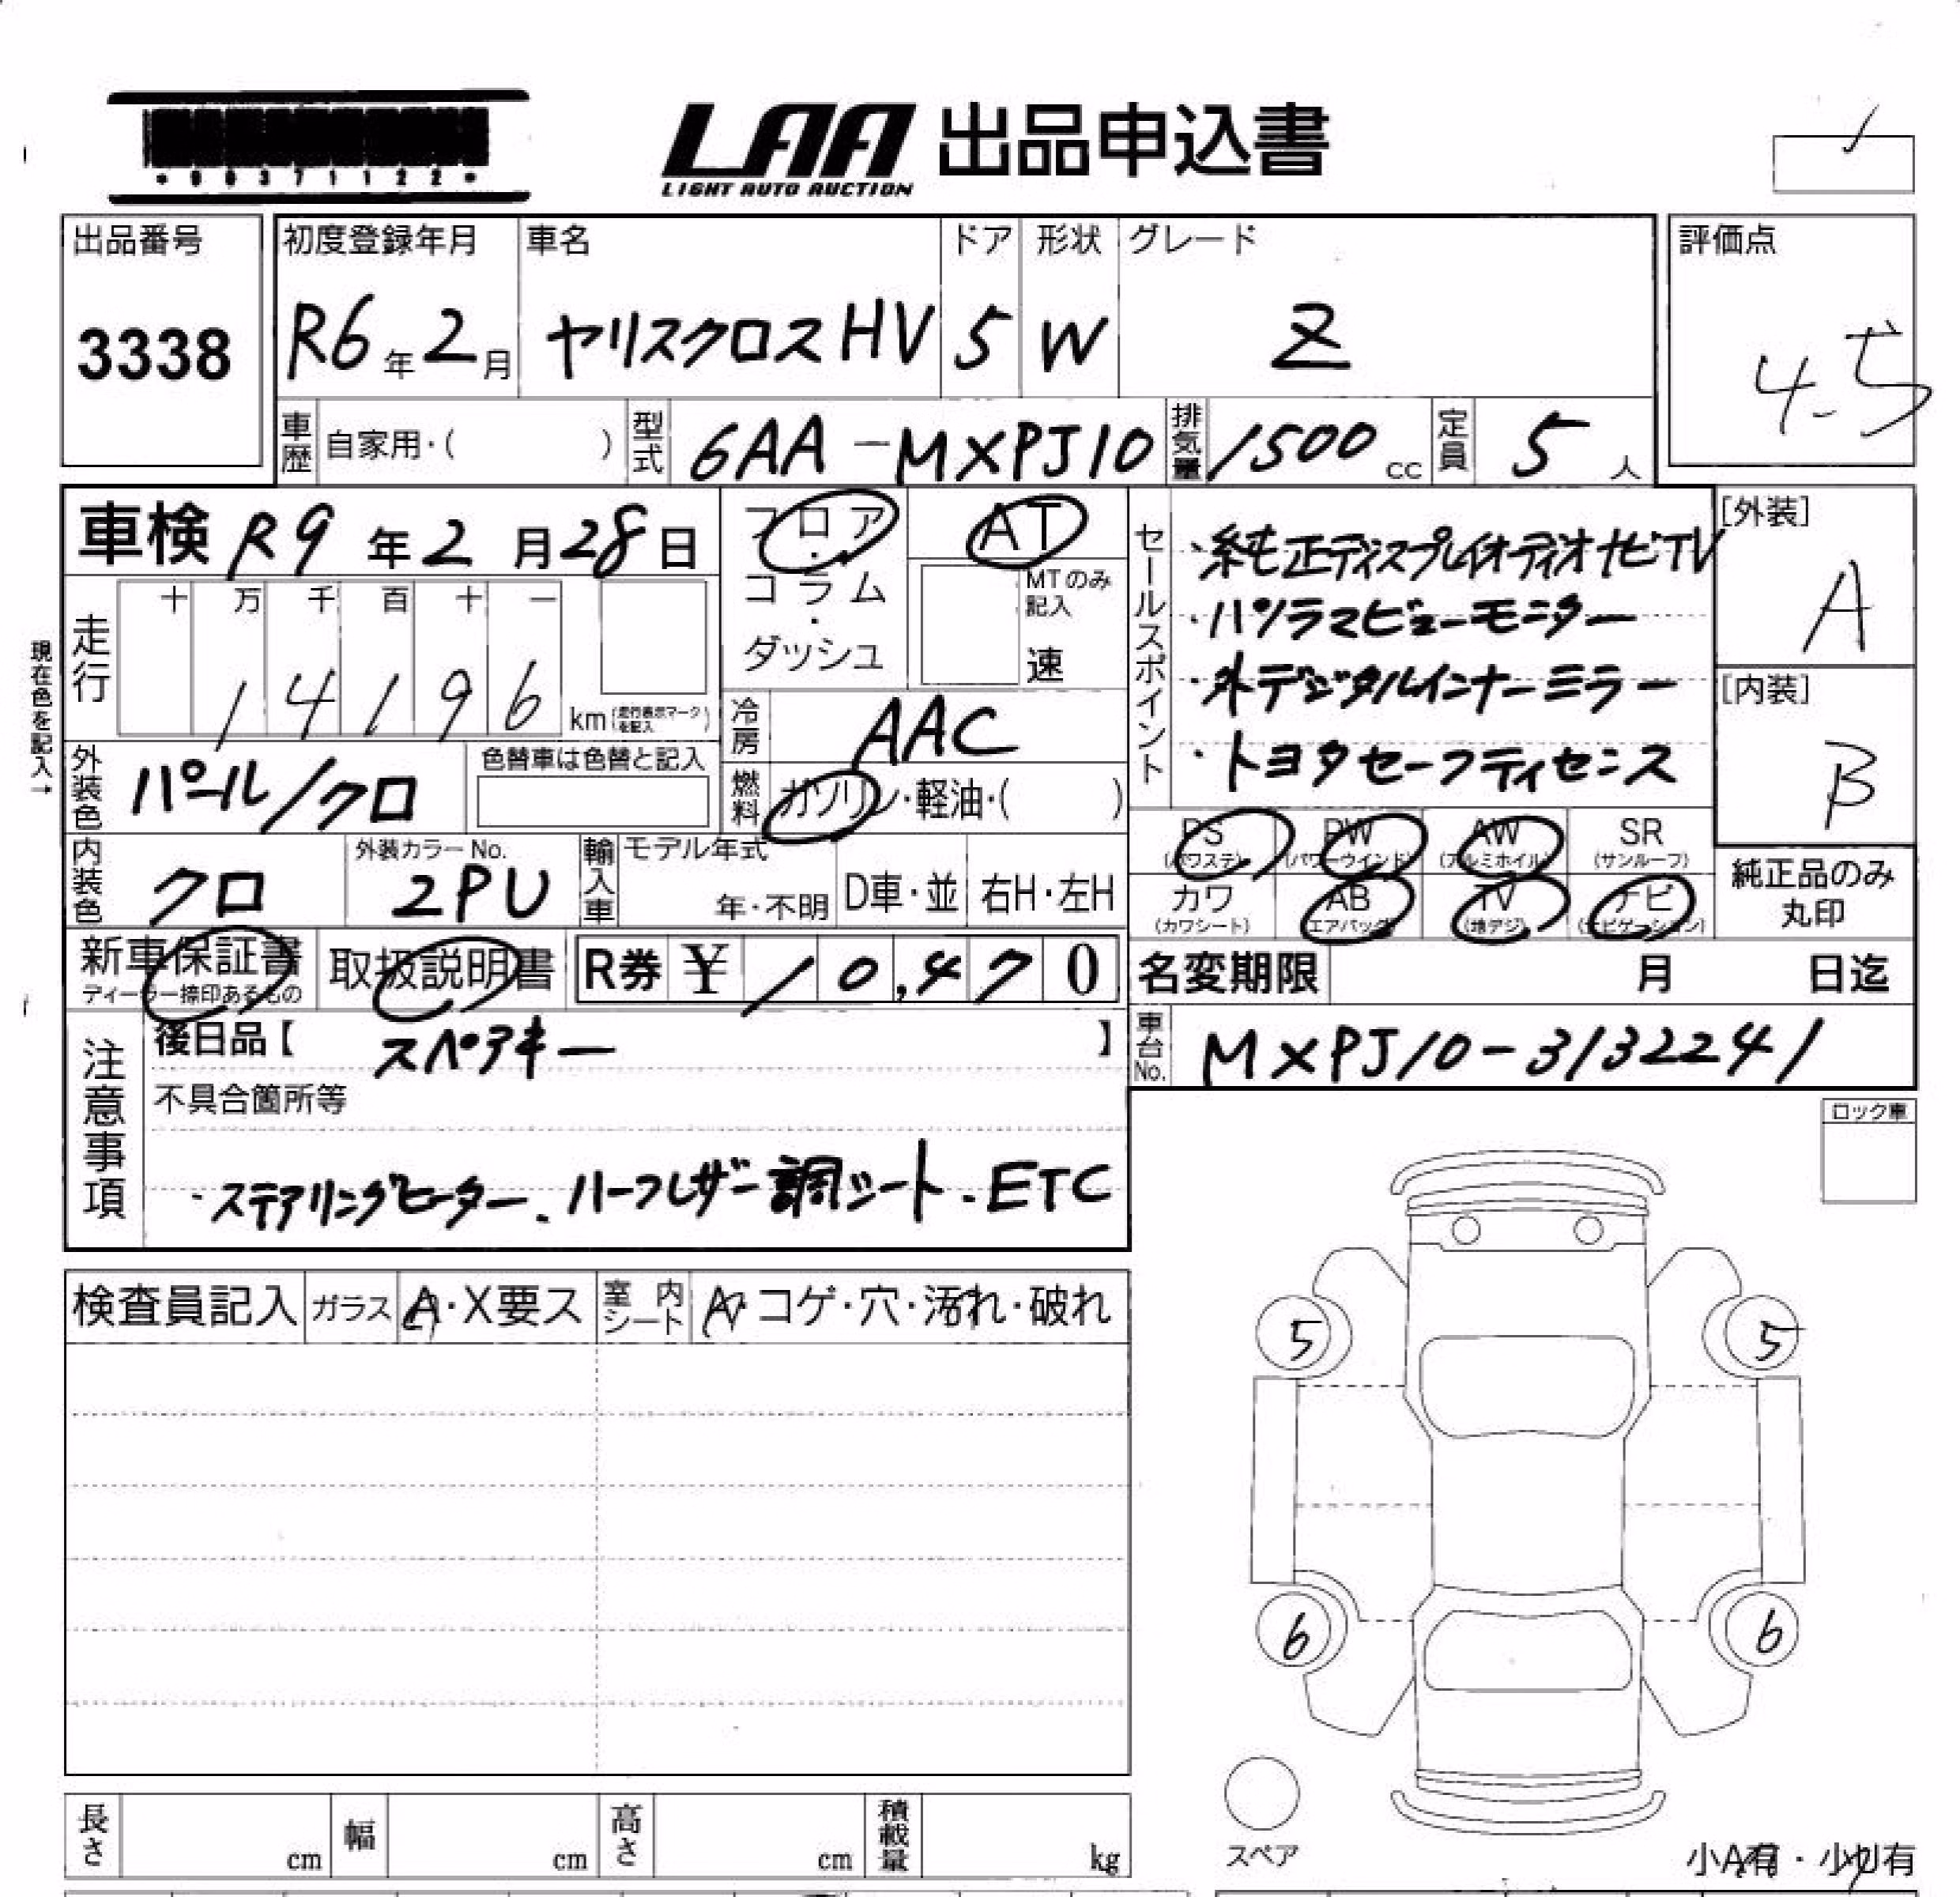 *00371122*
LAA 出品申込書
LIGHT AUTO AUCTION
出品番号 3338
初度登録年月 R6年2月
車名 ヤリスクロスHV
ドア 5
形状 W
グレード Z
評価点 4.5
車歴 自家用・( )
型式 6AA-MXPJ10
排気量 1500cc
定員 5人
車検 R9年2月28日
フロア・コラム・ダッシュ
AT
MTのみ記入
速
セールスポイント
・純正ディスプレイオーディオナビTV
・パノラマビューモニター
・デジタルインナーミラー
・トヨタセーフティセンス
[外装] A
[内装] B
現在色を記入→
走行 十万千百十一
14196 km(走行表示マークを記入)
冷房 AAC
外装色 パール/クロ
色替車は色替と記入
燃料 ガソリン・軽油・( )
内装色 クロ
外装カラーNo. 2PU
輸入車 モデル年式 年・不明
D車・並
右H・左H
PS(パワステ) PW(パワーウインド) AW(アルミホイル) SR(サンルーフ)
カワ(カワシート) AB(エアバッグ) TV(地デジ) ナビ(ナビゲーション)
純正品のみ丸印
新車保証書
ディーラー捺印あるもの
取扱説明書
R券 ¥10,470
名変期限 月 日迄
注意事項
後日品【スペアキー】
車台No. MXPJ10-3132241
不具合箇所等
・ステアリングヒーター.ハーフレザー調シート.ETC
ロック車
検査員記入 ガラス A・X要ス 室内シート A・コゲ・穴・汚れ・破れ
5 5
6 6
スペア
長さ cm 幅 cm 高さ cm 積載量 kg
小A有・小U有